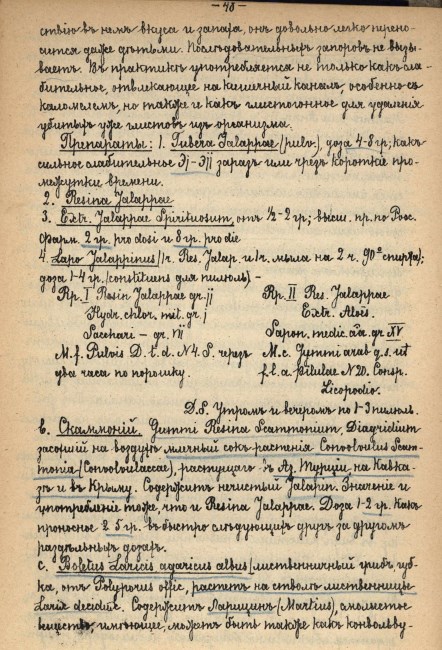 – 40 –
ствію въ немъ вкуса и запаха, онъ довольно легко перено-
сится даже дѣтьми. Послѣдовательныхъ запоровъ не вызы-
ваетъ. Въ практикѣ употребляется не только какъ сла-
бительное, отвлекающее на кишечный каналъ, особенно съ
каломелемъ, но также и какъ глистогонное для удаленія
убитыхъ уже глистовъ изъ организма.
Препараты: 1. Tubera Jalappae (pulv.), доза 4-8 gr; какъ
сильное слабительное ℨj-ℨjj заразъ или чрезъ короткіе про-
межутки времени.
2. Resina Jalappae
3. Extr. Jalappae Spirituosum, отъ ½-2 gr; высш. пр. по Рос.
Фарм. 2 gr. pro dosi и 8 gr. pro die
4. Sapo Jalappinus (1 ч. Res. Jalap. и 1 ч. мыла на 2 ч. 90° спирта);
доза 1-4 gr. (constituens для пилюль) –
Rp. I Resin Jalappae gr. jj
Hydr. chlor. mit. gr. j
Sacchari – gr. vjj
M. f. Pulvis D. t. d. N 4. S. чрезъ
два часа по порошку.
Rp. II Res. Jalappae
Extr. Alois.
Sapon. medic. aa gr. XV
M. c. Gummi arab q. s. ut
f. l. a. pilulae N 20. Consp.
Licopodio.
D. S. Утромъ и вечеромъ по 1-3 пилюл.
b. Скаммоній. Gummi Resina Scammonium, Diagridium
засохшій на воздухѣ млечный сокъ растенія Convolvulus Scam-
monia (Convolvulaceae), растущаго въ Аз. Турціи, на Кавка-
зѣ и въ Крыму. Содержитъ нечистый Jalapin. Значеніе и
употребленіе тоже, что и Resina Jalappae. Доза 1-2 gr. Какъ
проносное 2-5 gr. въ быстро слѣдующихъ другъ за другомъ
раздѣльныхъ дозахъ.
c. Boletus Laricis agaricus albus (лиственничный грибъ, губ-
ка, отъ Polyporus offic., растетъ на стволѣ лиственницы
Larix decidue. Содержитъ Ларицинъ (Martius), смолистое
вещество, имѣющее, можетъ быть также какъ конвольву-